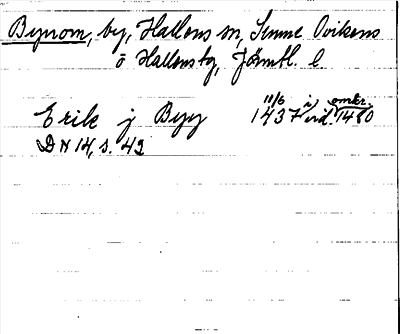 Bynom, by, Hallens sn, Sunne Ovikens
o Hallens tg, Jämtl. l
Erik j Byy 11/6 1437 i vid. omkr. 1480
DN 14, s. 42